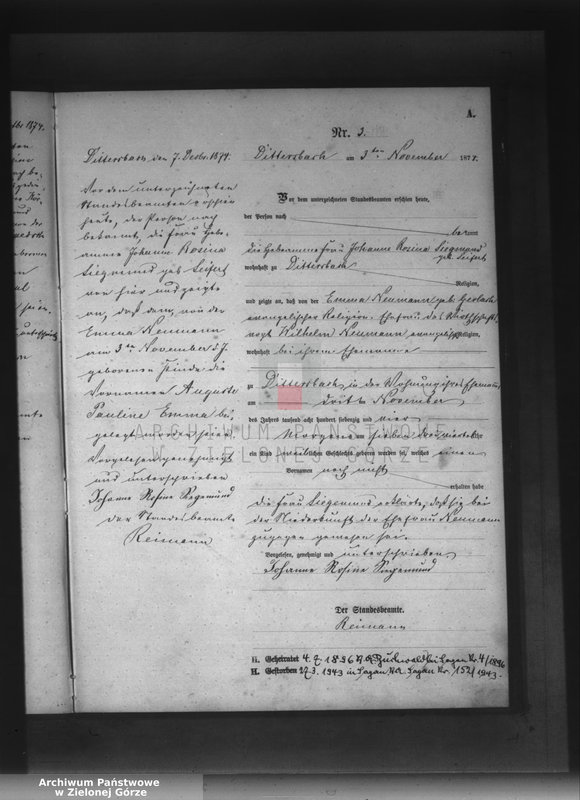 A.
Nr. 3.
Dittersbach, den 7. Decbr. 1874.
Vor dem unterzeichneten
Standesbeamten erschien
heute, der Person nach
bekannt, die Frau Heb-
amme Johanne Rosina
Siegmund geb. Seifert
von hier und zeigte
an, daß dem, von der
Emma Neumann
am 3ten November d. J.
geborenen Kinde die
Vornamen Auguste
Pauline Emma bei-
gelegt worden seien.
Vorgelesen, genehmigt
und unterschrieben
Johanne Rosine Siegmund
Der Standesbeamte
Reimann
Dittersbach am 3ten November 1874.
Vor dem unterzeichneten Standesbeamten erschien heute,
der Person nach
bekannt
die Hebamme Frau Johanne Rosina Siegmund
geb. Seifert
wohnhaft zu Dittersbach
Religion,
und zeigte an, daß von der Emma Neumann geb. Gerlach
evangelischer Religion, Ehefrau des Wirthschafts-
vogt Wilhelm Neumann evangelischer Religion,
wohnhaft bei ihrem Ehemanne
zu Dittersbach, in der Wohnung ihres Ehemannes
am dritten November
des Jahres tausend acht hundert siebenzig und vier
Morgens um sieben Uhr
ein Kind weiblichen Geschlechts geboren worden sei, welches einen
Vornamen noch nicht
erhalten habe
die Frau Siegmund erklärte, daß sie bei
der Niederkunft der Ehefrau Neumann
zugegen gewesen sei.
Vorgelesen, genehmigt und unterschrieben
Johanne Rosine Siegmund
Der Standesbeamte.
Reimann
H. Geheiratet 4. 2. 1896 Buchwald bei Sagan Nr. 4/1896
H. Gestorben 27.3. 1943 in Sagan StA. Sagan Nr. 152/1943.
ARCHIWUM PAŃSTWOWE
W ZIELONEJ GÓRZE
Archiwum Państwowe
w Zielonej Górze